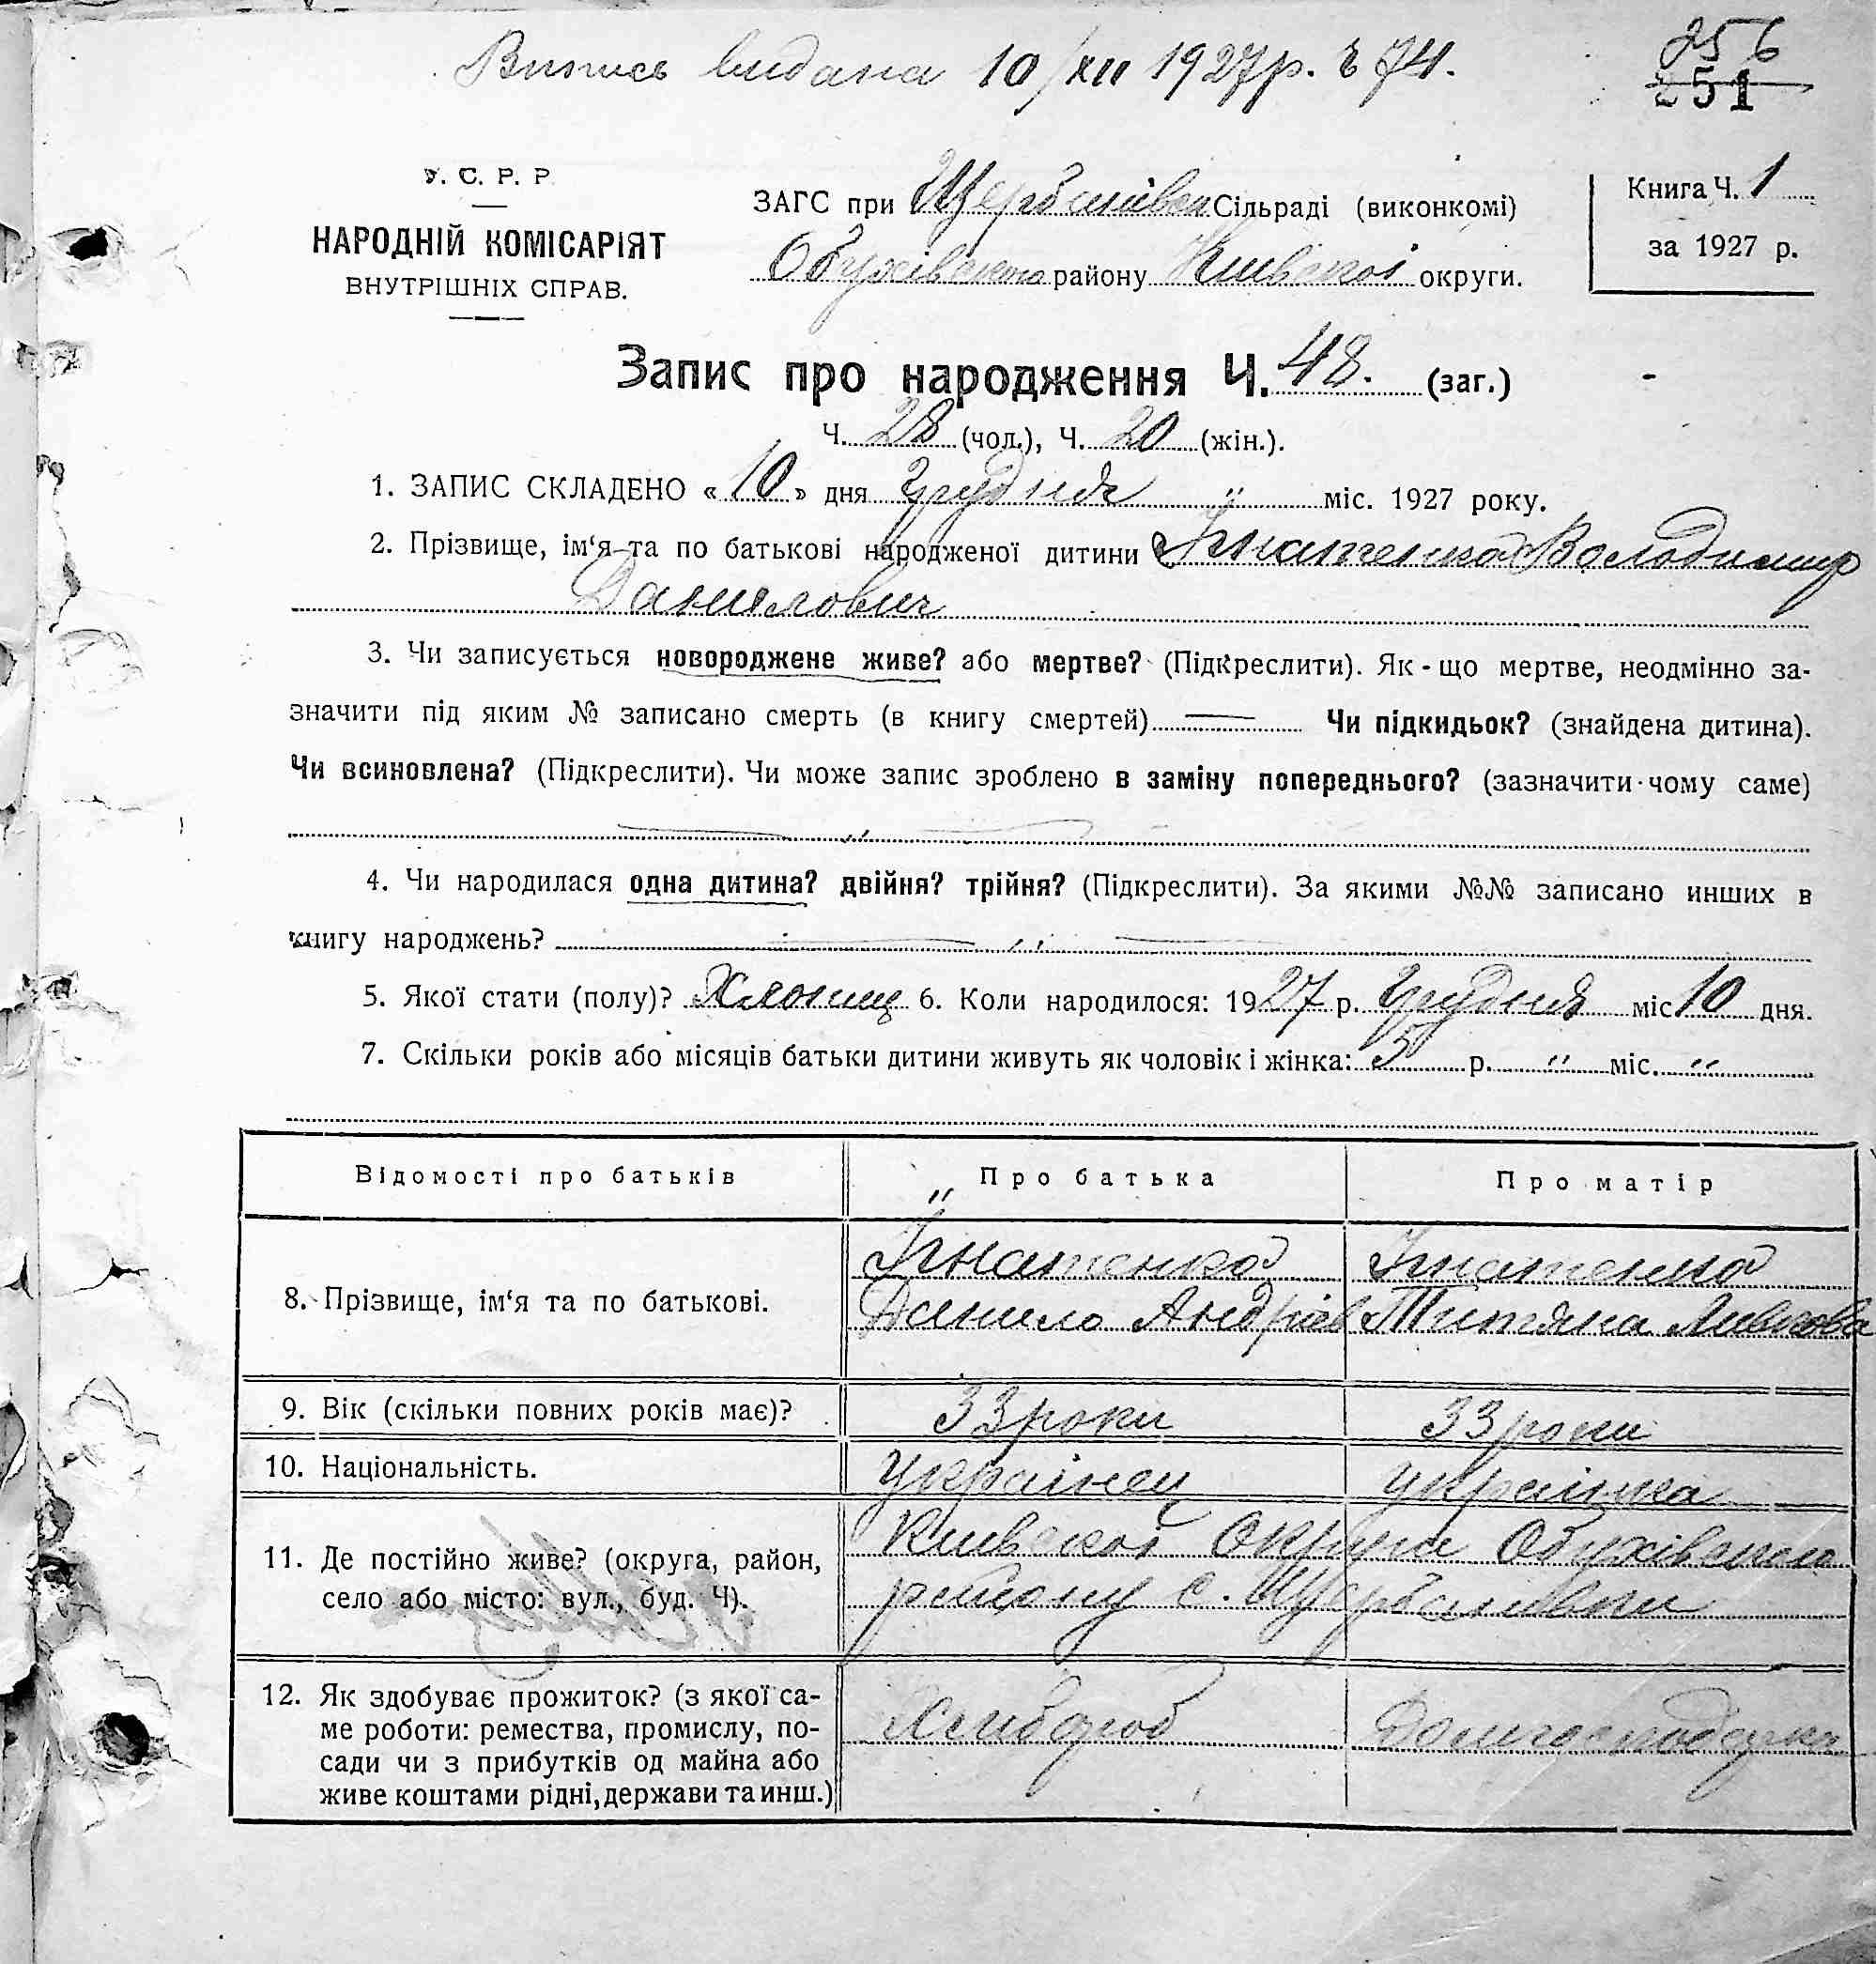 Випись видана 10/XII 1927р. 74.
256
251
У. С. Р. Р.
НАРОДНІЙ КОМІСАРІЯТ
ВНУТРІШНІХ СПРАВ.
ЗАГС при Щербанівск Сільраді (виконкомі)
Обухівського району Київської округи.
Книга Ч. 1
за 1927 р.
Запис про народження Ч. 48. (заг.)
Ч. 28 (чол.), Ч. 20 (жін.).
1. ЗАПИС СКЛАДЕНО « 10 » дня Грудня " міс. 1927 року.
2. Прізвище, ім‘я та по батькові народженої дитини Ігнатенко Володимир
Данилович
3. Чи записується новороджене живе? або мертве? (Підкреслити). Як - що мертве, неодмінно за-
значити під яким № записано смерть (в книгу смертей) — Чи підкидьок? (знайдена дитина).
Чи всиновлена? (Підкреслити). Чи може запис зроблено в заміну попереднього? (зазначити чому саме)
— " —
4. Чи народилася одна дитина? двійня? трійня? (Підкреслити). За якими №№ записано инших в
книгу народжень? — " —
5. Якої стати (полу)? Хлопиц 6. Коли народилося: 1927 р. Грудня міс 10 дня.
7. Скільки років або місяців батьки дитини живуть як чоловік і жінка: 5 р. " міс. "
Відомості про батьків
Про батька
Про матір
8. Прізвище, ім‘я та по батькові.
Ігнатенко
Данило Андріев
Ігнатенко
Титяна
9. Вік (скільки повних років має)?
33 роки
33 роки
10. Національність.
українец
українка
11. Де постійно живе? (округа, район,
село або місто: вул., буд. Ч).
Київської Округи Обухівського
району с. Щербанівки
12. Як здобуває прожиток? (з якої са-
ме роботи: ремества, промислу, по-
сади чи з прибутків од майна або
живе коштами рідні, держави та инш.)
Хлибороб
Домгосподарка